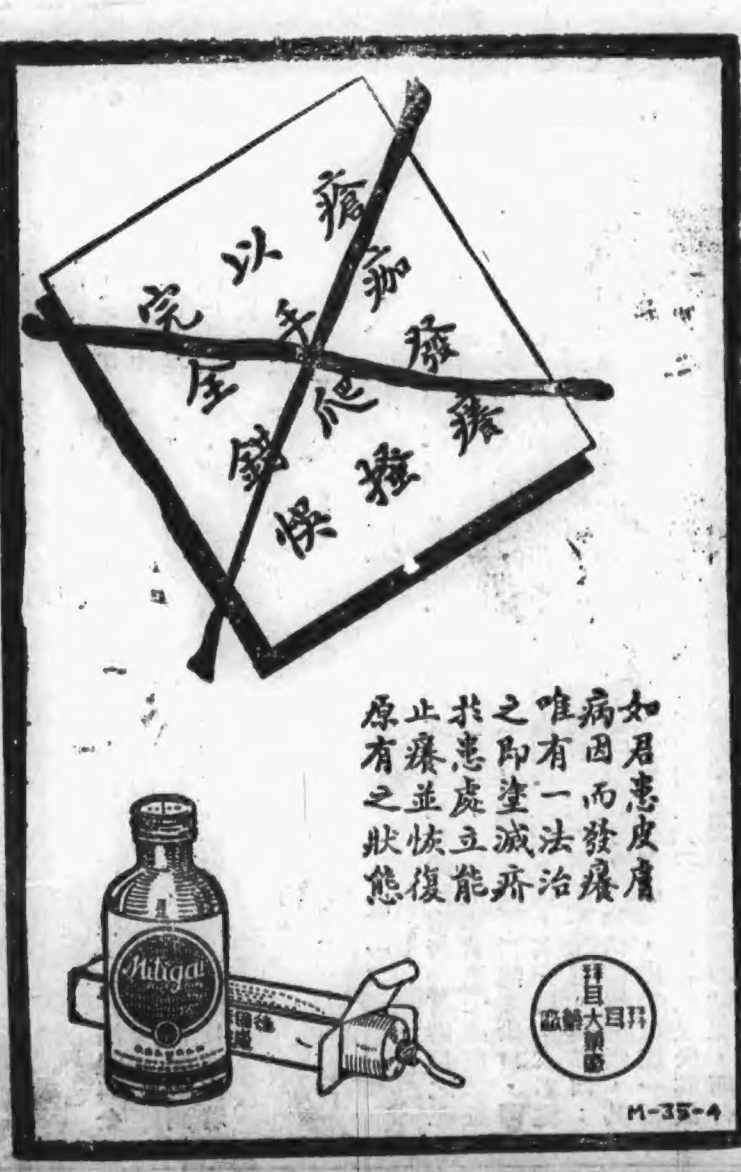 瘡痂發癢
以手爬搔
完全錯悞
如君患皮膚
病因而發癢
唯有一法治
之即塗滅疥
於患處立能
止癢並恢復
原有之狀態
Mitigal
拜耳大藥廠
M-35-4